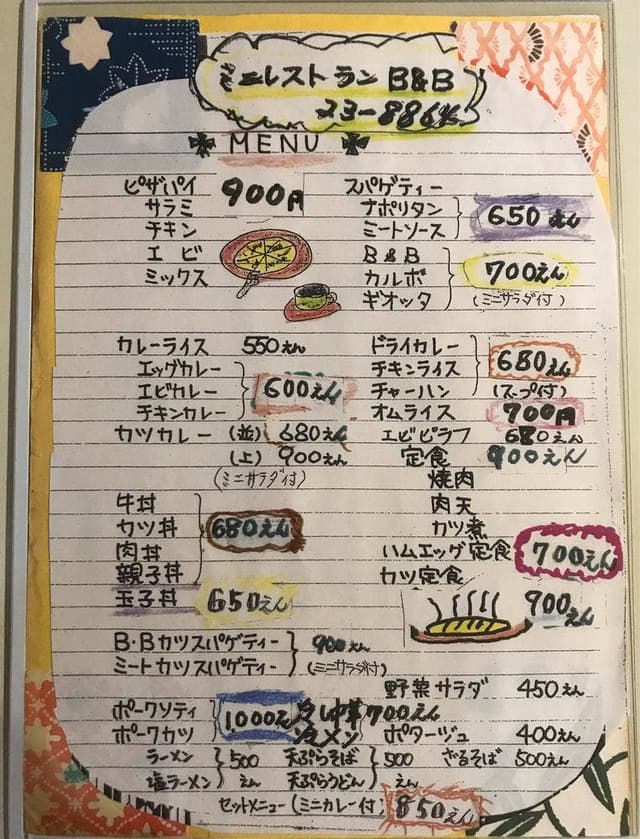 ミニレストラン B&B
23-8864
MENU
ピザパイ 900円
サラミ
チキン
エビ
ミックス
スパゲティー
ナポリタン
ミートソース 650えん
B&B
カルボ 700えん
ギオッタ (ミニサラダ付)
カレーライス 550えん
エッグカレー
エビカレー 600えん
チキンカレー
カツカレー (並) 680えん
(上) 900えん
(ミニサラダ付)
ドライカレー
チキンライス 680えん
チャーハン (スープ付)
オムライス 700円
エビピラフ 680えん
定食 900えん
焼肉
肉天
カツ煮
ハムエッグ定食 700えん
カツ定食
900えん
牛丼
カツ丼 680えん
肉丼
親子丼
玉子丼 650えん
B・Bカツスパゲティー 900えん
ミートカツスパゲティー (ミニサラダ付)
野菜サラダ 450えん
ポークソティ 1000えん 冷し中華 700えん
ポークカツ 冷メン ポタージュ 400えん
ラーメン 500 天ぷらそば 500 ざるそば 500えん
塩ラーメン えん 天ぷらうどん えん
セットメニュー (ミニカレー付) 850えん